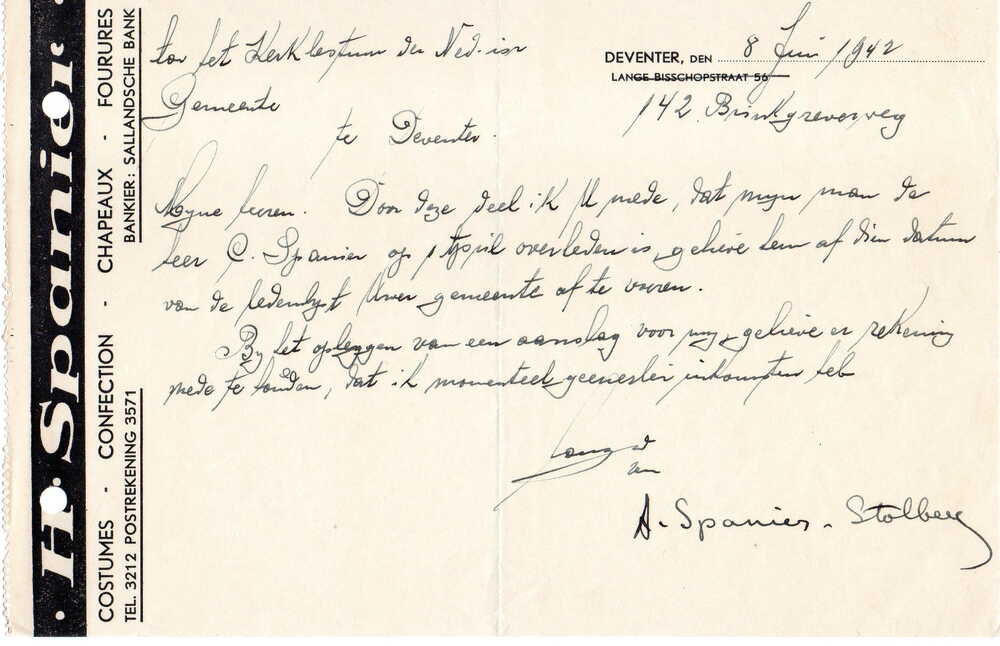 H. Spanier
COSTUMES - CONFECTION - CHAPEAUX - FOURURES
TEL. 3212 POSTREKENING 3571 BANKIER: SALLANDSCHE BANK
DEVENTER, DEN 8 Juni 1942
LANGE BISSCHOPSTRAAT 56
142 Brinkgreverweg
het Kerkbestuur der Ned-isr
Gemeente
te Deventer.
Myne heeren. Door deze deel ik U mede, dat myn man de
heer C. Spanier op 1 April overleden is, gelieve hem af dien datum
van de ledenlyst Uwer gemeente af te voeren.
By het opleggen van een aanslag voor my, gelieve er rekening
mede te houden, dat ik momenteel geenerlei inkomsten heb
A. Spanier - Stolberg